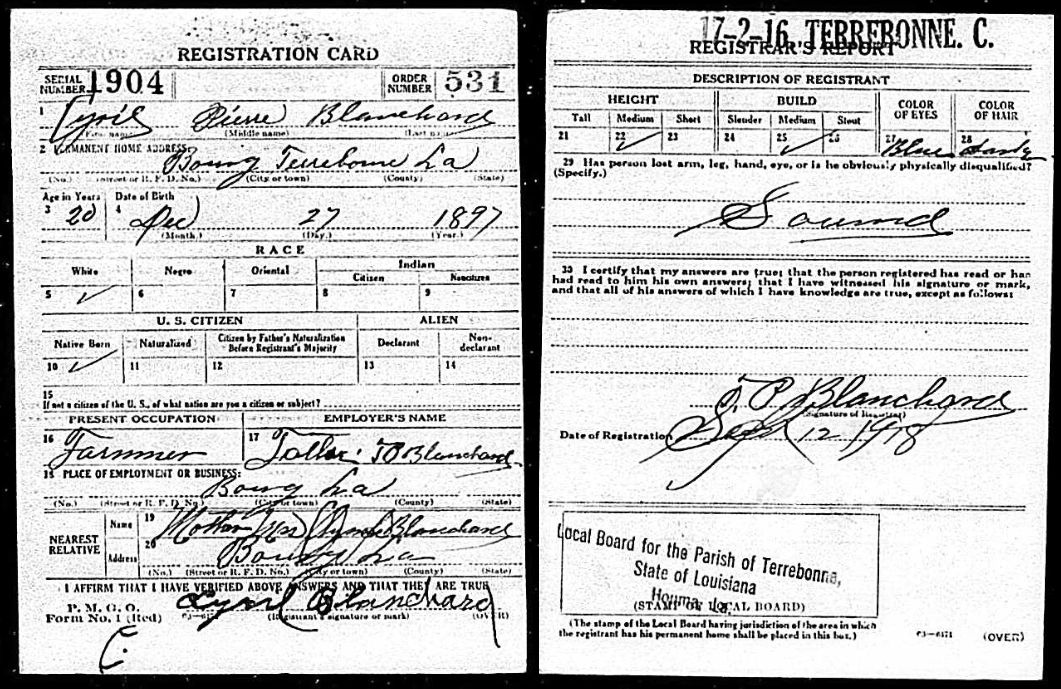 REGISTRATION CARD
SERIAL NUMBER 1904 ORDER NUMBER 531
1 Cyril Pierre Blanchard
(First name) (Middle name) (Last name)
2 PERMANENT HOME ADDRESS:
Bourg Terrebonne La
(No.) (Street or R. F. D. No.) (City or town) (County) (State)
Age in Years Date of Birth
3 20 4 Dec 27 1897
(Month.) (Day.) (Year.)
RACE
White Negro Oriental Indian
Citizen Noncitizen
5 ✓ 6 7 8 9
U. S. CITIZEN ALIEN
Native Born Naturalized Citizen by Father's Naturalization Before Registrant's Majority Declarant Non-declarant
10 ✓ 11 12 13 14
15
If not a citizen of the U. S., of what nation are you a citizen or subject?
PRESENT OCCUPATION EMPLOYER'S NAME
16 Farmer 17 T P Blanchard
18 PLACE OF EMPLOYMENT OR BUSINESS:
Bourg La
(No.) (Street or R. F. D. No.) (City or town) (County) (State)
NEAREST RELATIVE
Name 19 Mother Mrs Blanchard
Address 20 Bourg La
(No.) (Street or R. F. D. No.) (City or town) (County) (State)
I AFFIRM THAT I HAVE VERIFIED ABOVE ANSWERS AND THAT THEY ARE TRUE
P. M. G. O.
Form No. 1 (Red)
Cyril Blanchard
03—6171 (Registrant's signature or mark) (OVER)
C.
17-2-16. TERREBONNE. C.
REGISTRAR'S REPORT
DESCRIPTION OF REGISTRANT
HEIGHT BUILD COLOR OF EYES COLOR OF HAIR
Tall Medium Short Slender Medium Stout
21 22 ✓ 23 24 25 ✓ 26 27 Blue 28
29 Has person lost arm, leg, hand, eye, or is he obviously physically disqualified?
(Specify.)
Sound
30 I certify that my answers are true; that the person registered has read or has
had read to him his own answers; that I have witnessed his signature or mark,
and that all of his answers of which I have knowledge are true, except as follows:
T. P. Blanchard
(Signature of Registrar)
Date of Registration Sept 12 1918
Local Board for the Parish of Terrebonne,
State of Louisiana
Houma, La.
(STAMP OF LOCAL BOARD)
(The stamp of the Local Board having jurisdiction of the area in which
the registrant has his permanent home shall be placed in this box.)
03—6171 (OVER)